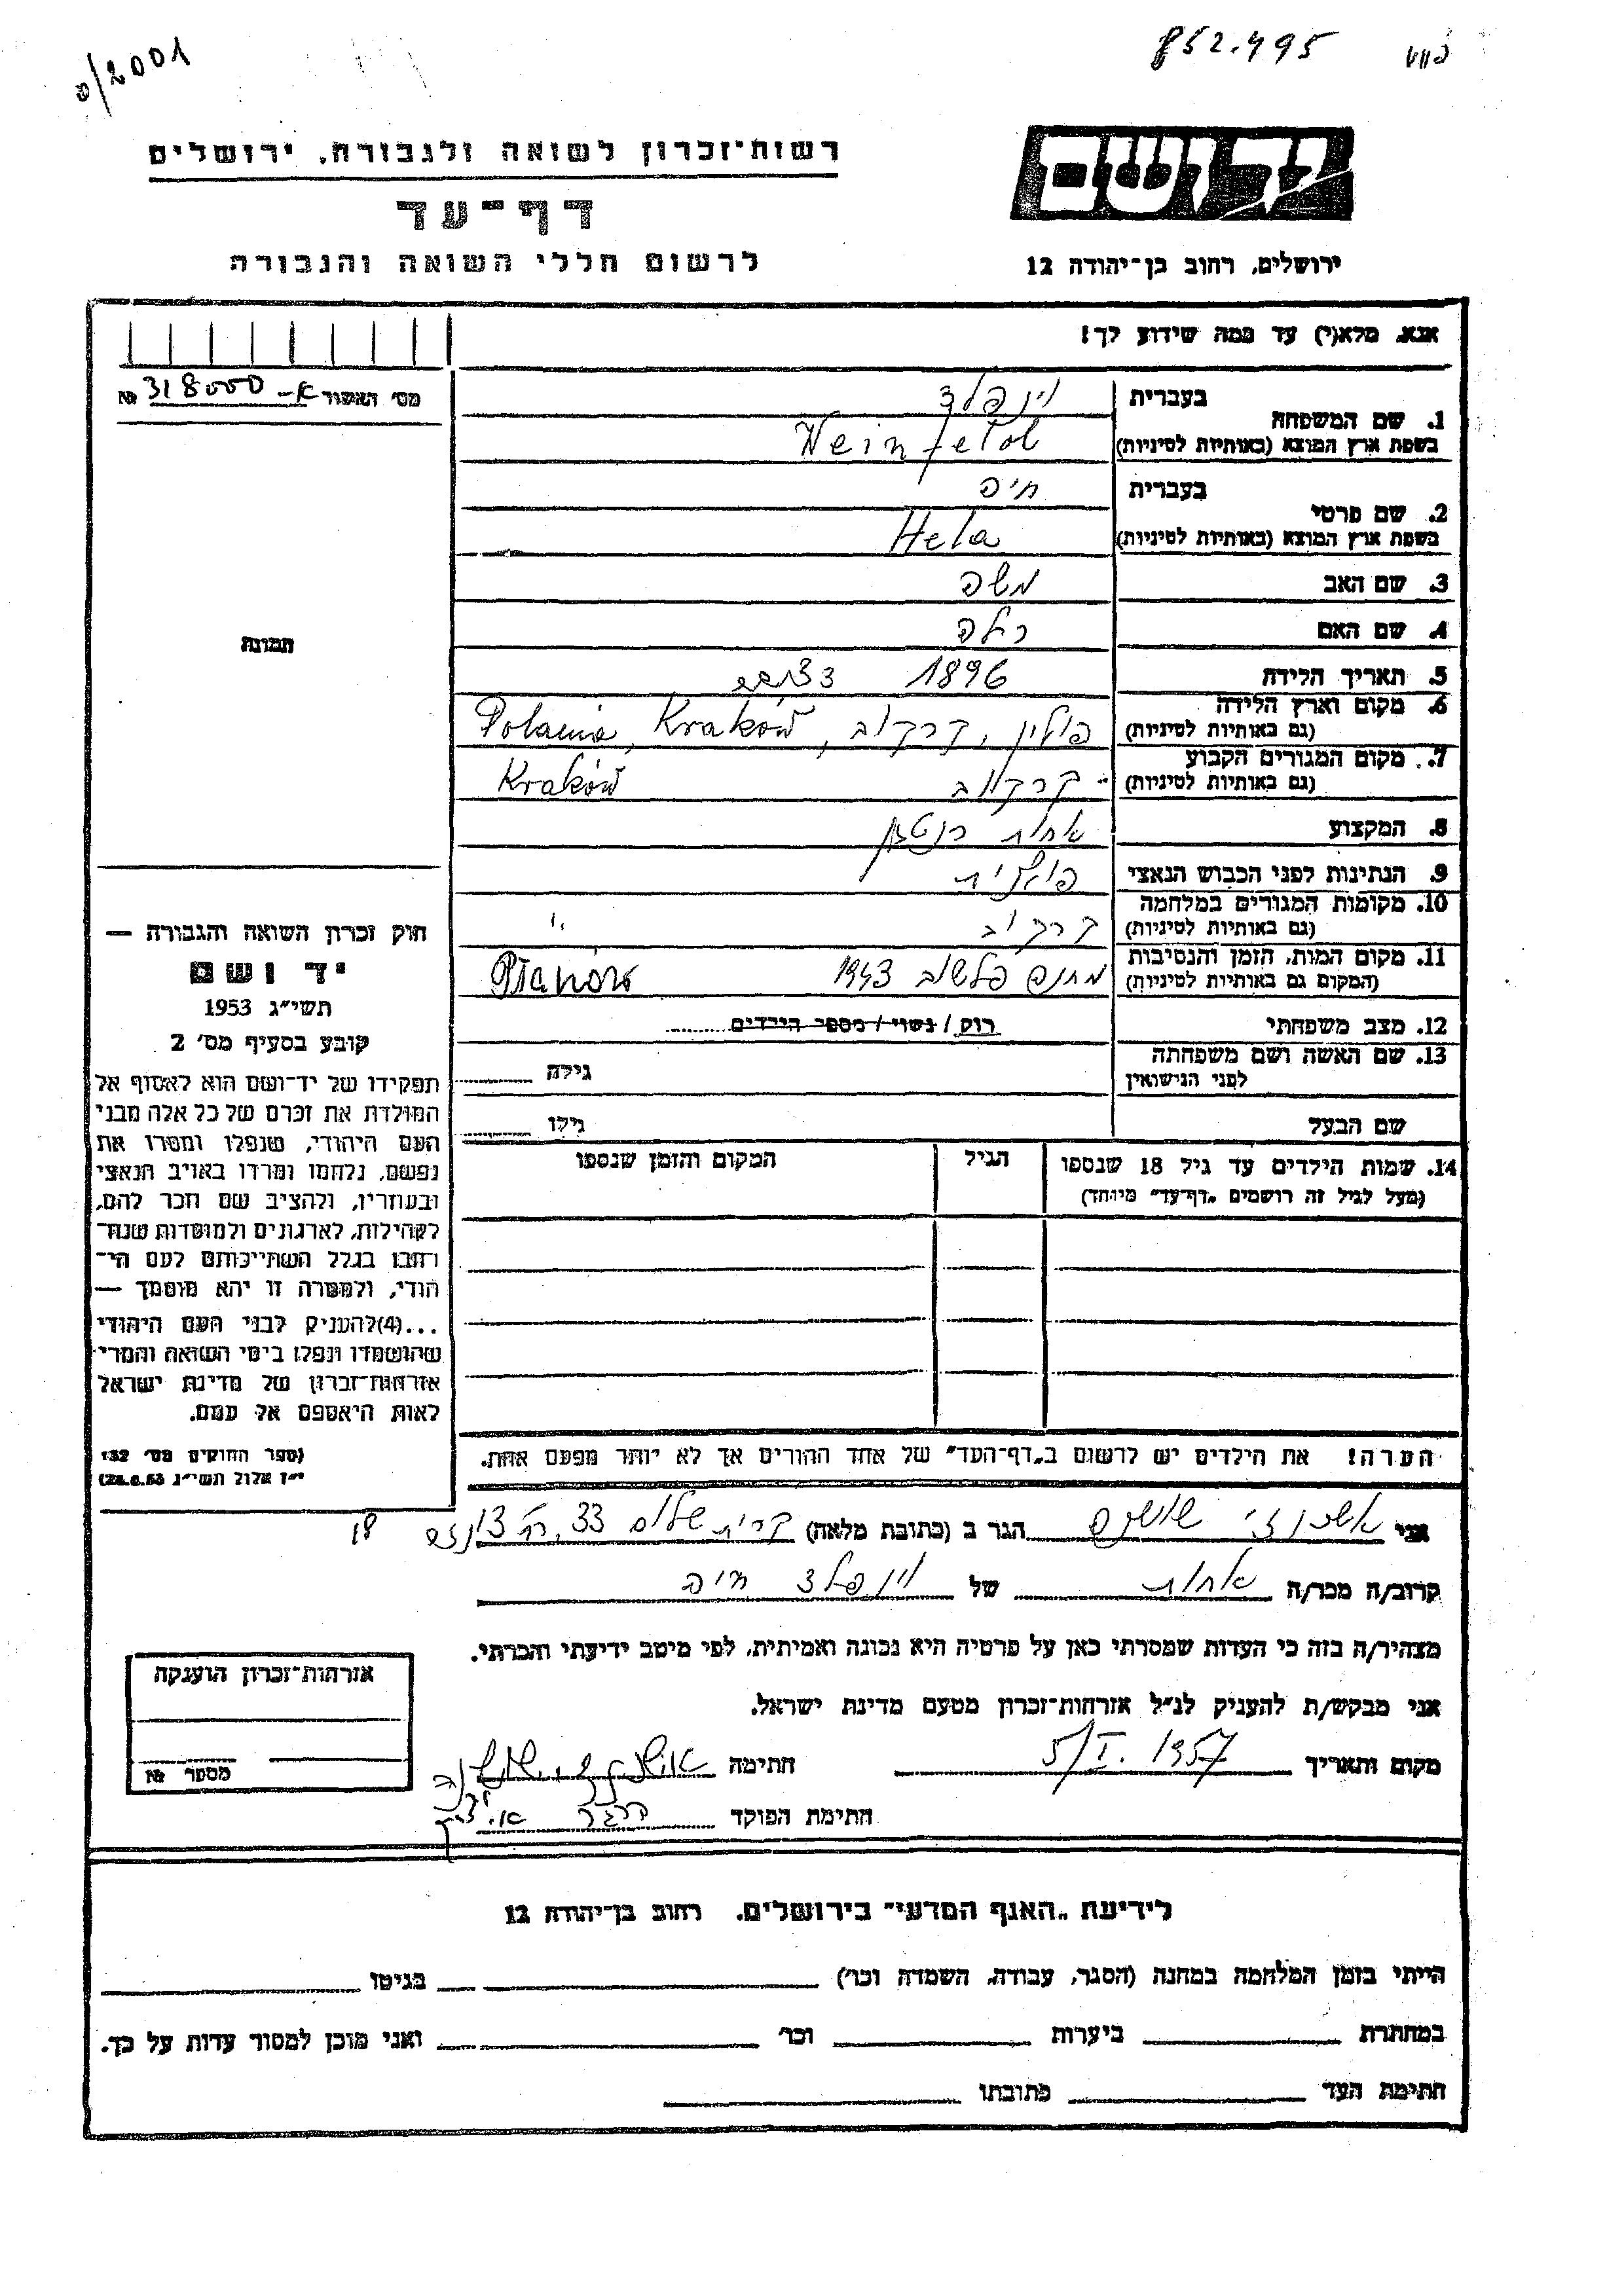 ס/2001
852.495
רשות־זכרון לשואה ולגבורה, ירושלים
יד ושם
דף־עד
לרשום חללי השואה והגבורה
ירושלים, רחוב בן־יהודה 12
אנא, מלא(י) עד כמה שידוע לך!
מס׳ האשור א– 318000 №
1. שם המשפחה
בעברית
וינפלד
בשפת ארץ המוצא (באותיות לטיניות)
Weinfeld
2. שם פרטי
בעברית
חיה
בשפת ארץ המוצא (באותיות לטיניות)
Hela
3. שם האב
משה
4. שם האם
רלה
5. תאריך הלידה
1896
6. מקום וארץ הלידה
(גם באותיות לטיניות)
פולין, קרקוב, Kraków, Polania
7. מקום המגורים הקבוע
(גם באותיות לטיניות)
קרקוב Kraków
8. המקצוע
אחות רנטגן
9. הנתינות לפני הכבוש הנאצי
פולנית
10. מקומות המגורים במלחמה
(גם באותיות לטיניות)
קרקוב "
11. מקום המות, הזמן והנסיבות
(המקום גם באותיות לטיניות)
מחנה פלשוב 1943
12. מצב משפחתי
רוק / נשוי / מספר הילדים
13. שם האשה ושם משפחתה
לפני הנישואין
גילה
שם הבעל
גילו
14. שמות הילדים עד גיל 18 שנספו
(מעל לגיל זה רושמים „דף־עד״ מיוחד)
הגיל
המקום והזמן שנספו
הערה! את הילדים יש לרשום ב„דף־העד״ של אחד ההורים אך לא יותר מפעם אחת.
תמונה
חוק זכרון השואה והגבורה —
יד ושם
תשי״ג 1953
קובע בסעיף מס׳ 2
תפקידו של יד־ושם הוא לאסוף אל
המולדת את זכרם של כל אלה מבני
העם היהודי, שנפלו ומסרו את
נפשם, נלחמו ומרדו באויב הנאצי
ובעוזריו, ולהציב שם וזכר להם,
לקהילות, לארגונים ולמוסדות שנח־
רבו בגלל השתייכותם לעם הי־
הודי, ולמטרה זו יהא מוסמך —
...(4)להעניק לבני העם היהודי
שהושמדו ונפלו בימי השואה והמרי
אזרחות־זכרון של מדינת ישראל
לאות היאספם אל עמם.
(ספר החוקים מס׳ 132
י״ז אלול תשי״ג 28.8.53)
אני אשכנזי שושנה הגר ב (כתובת מלאה) קרית שלום 33
קרוב/ה מכר/ה אחות של וינפלד חיה
מצהיר/ה בזה כי העדות שמסרתי כאן על פרטיה היא נכונה ואמיתית, לפי מיטב ידיעתי והכרתי.
אני מבקש/ת להעניק לנ״ל אזרחות־זכרון מטעם מדינת ישראל.
מקום ותאריך 5/I. 1957 חתימה אשכנזי שושנה
חתימת הפוקד
אזרחות־זכרון הוענקה
מספר №
לידיעת „האגף המדעי״ בירושלים, רחוב בן־יהודה 12
הייתי בזמן המלחמה במחנה (הסגר, עבודה, השמדה וכו׳) בגיטו
במחתרת ביערות וכו׳ ואני מוכן למסור עדות על כך.
חתימת העד כתובתו